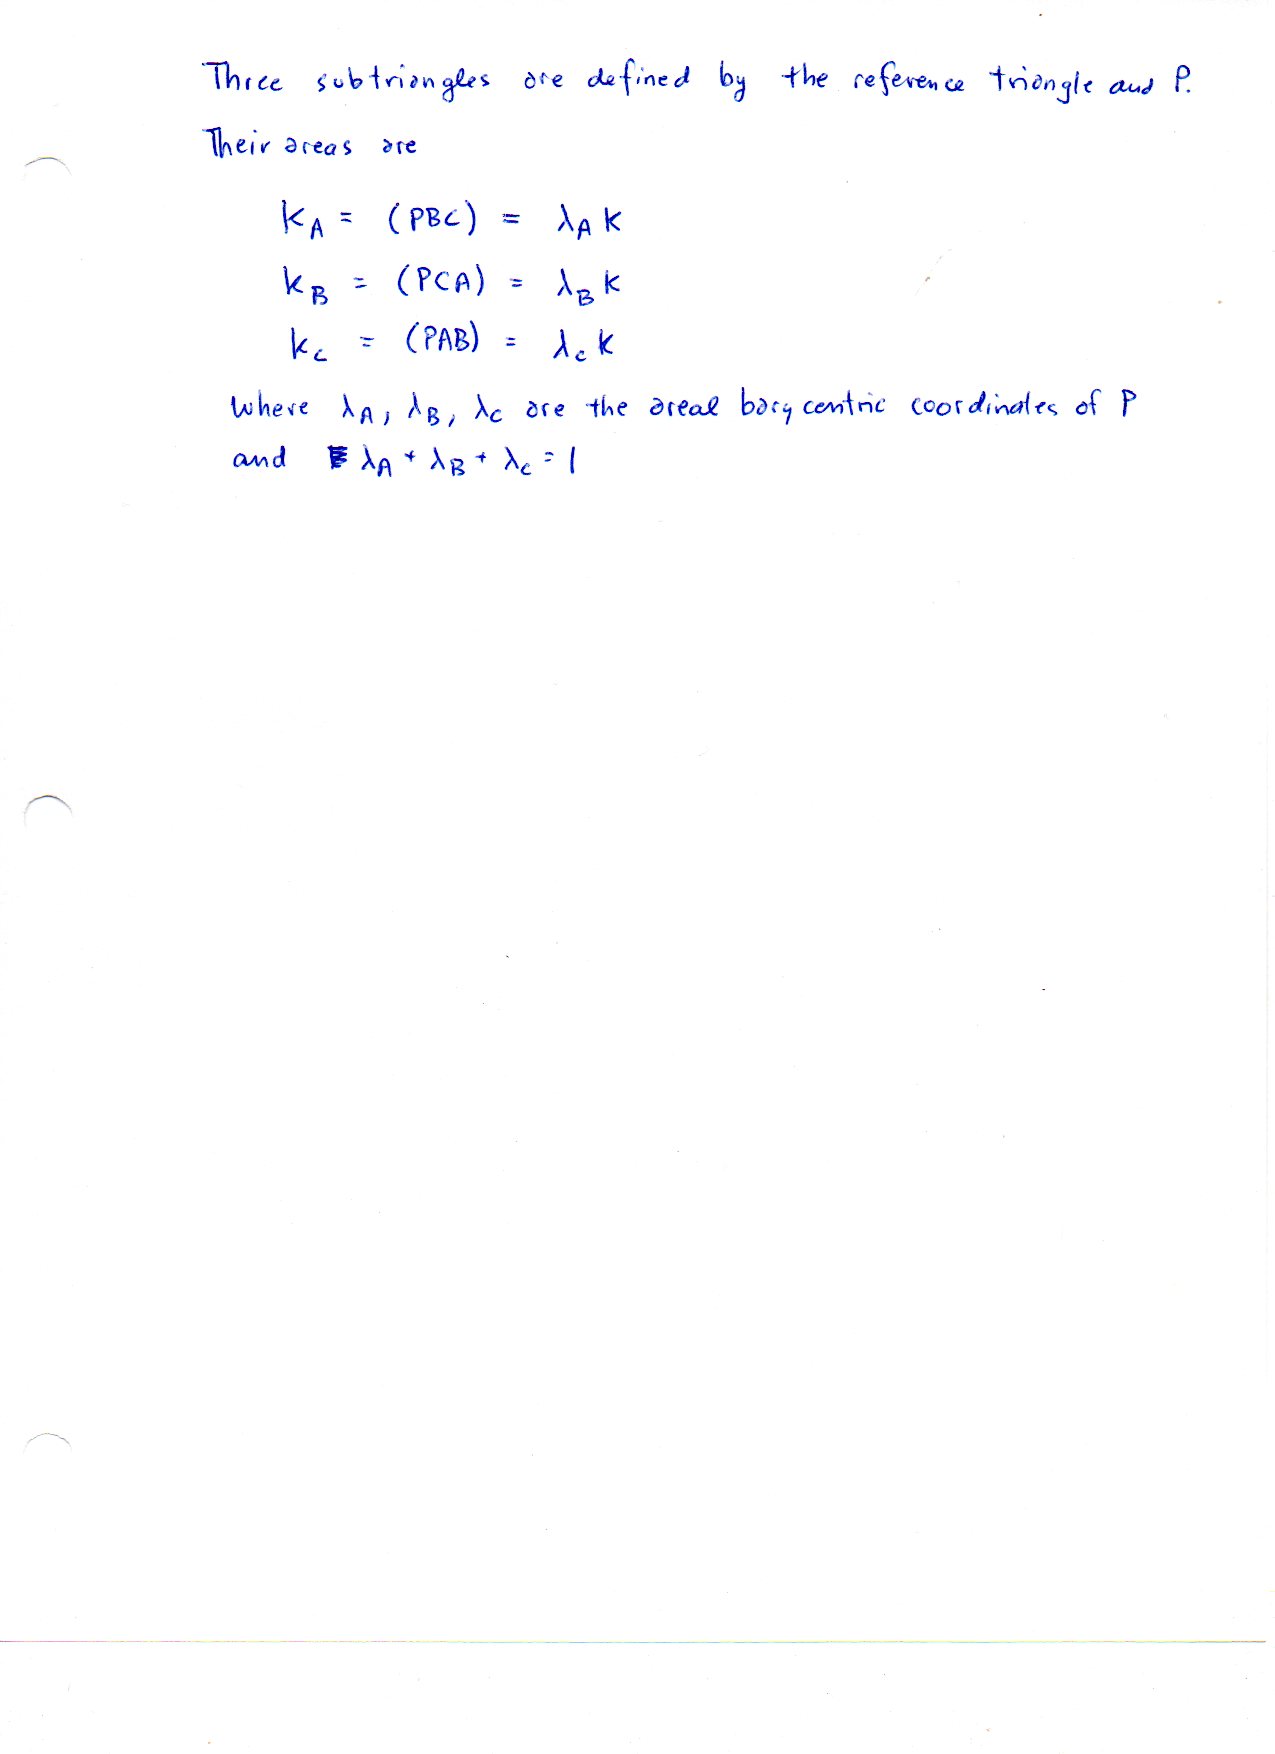 Three subtriangles are defined by the reference triangle and P.
Their areas are
k_A = (PBC) = λ_A k
k_B = (PCA) = λ_B k
k_C = (PAB) = λ_C k
where λ_A, λ_B, λ_C are the areal barycentric coordinates of P
and λ_A + λ_B + λ_C = 1